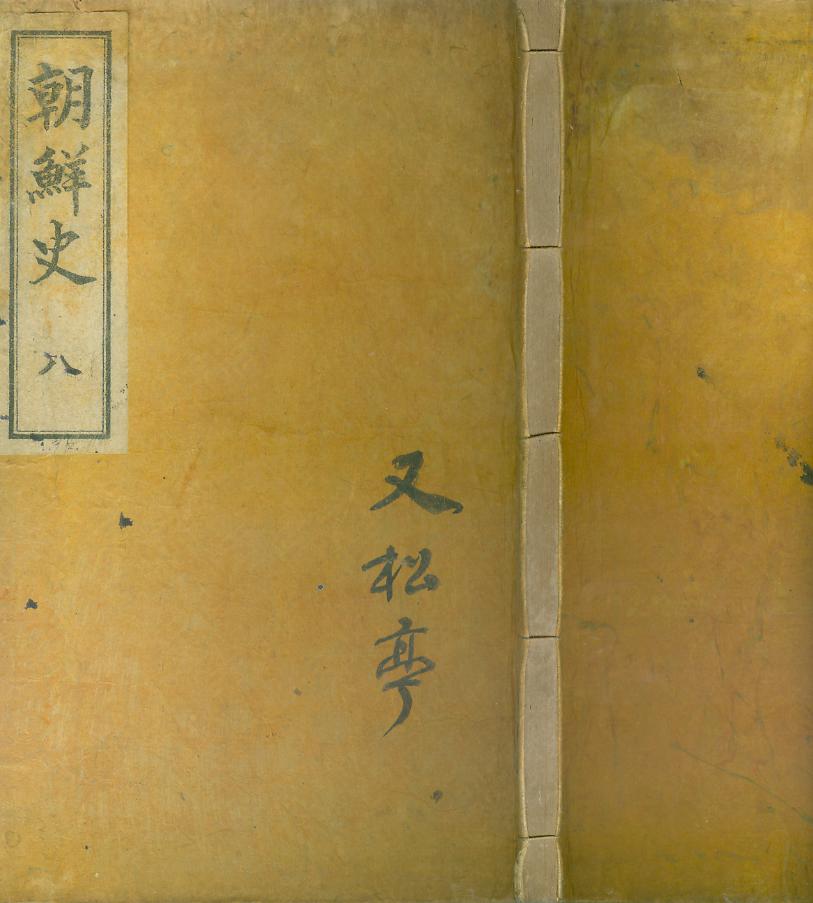 朝鮮史 八
又松亭